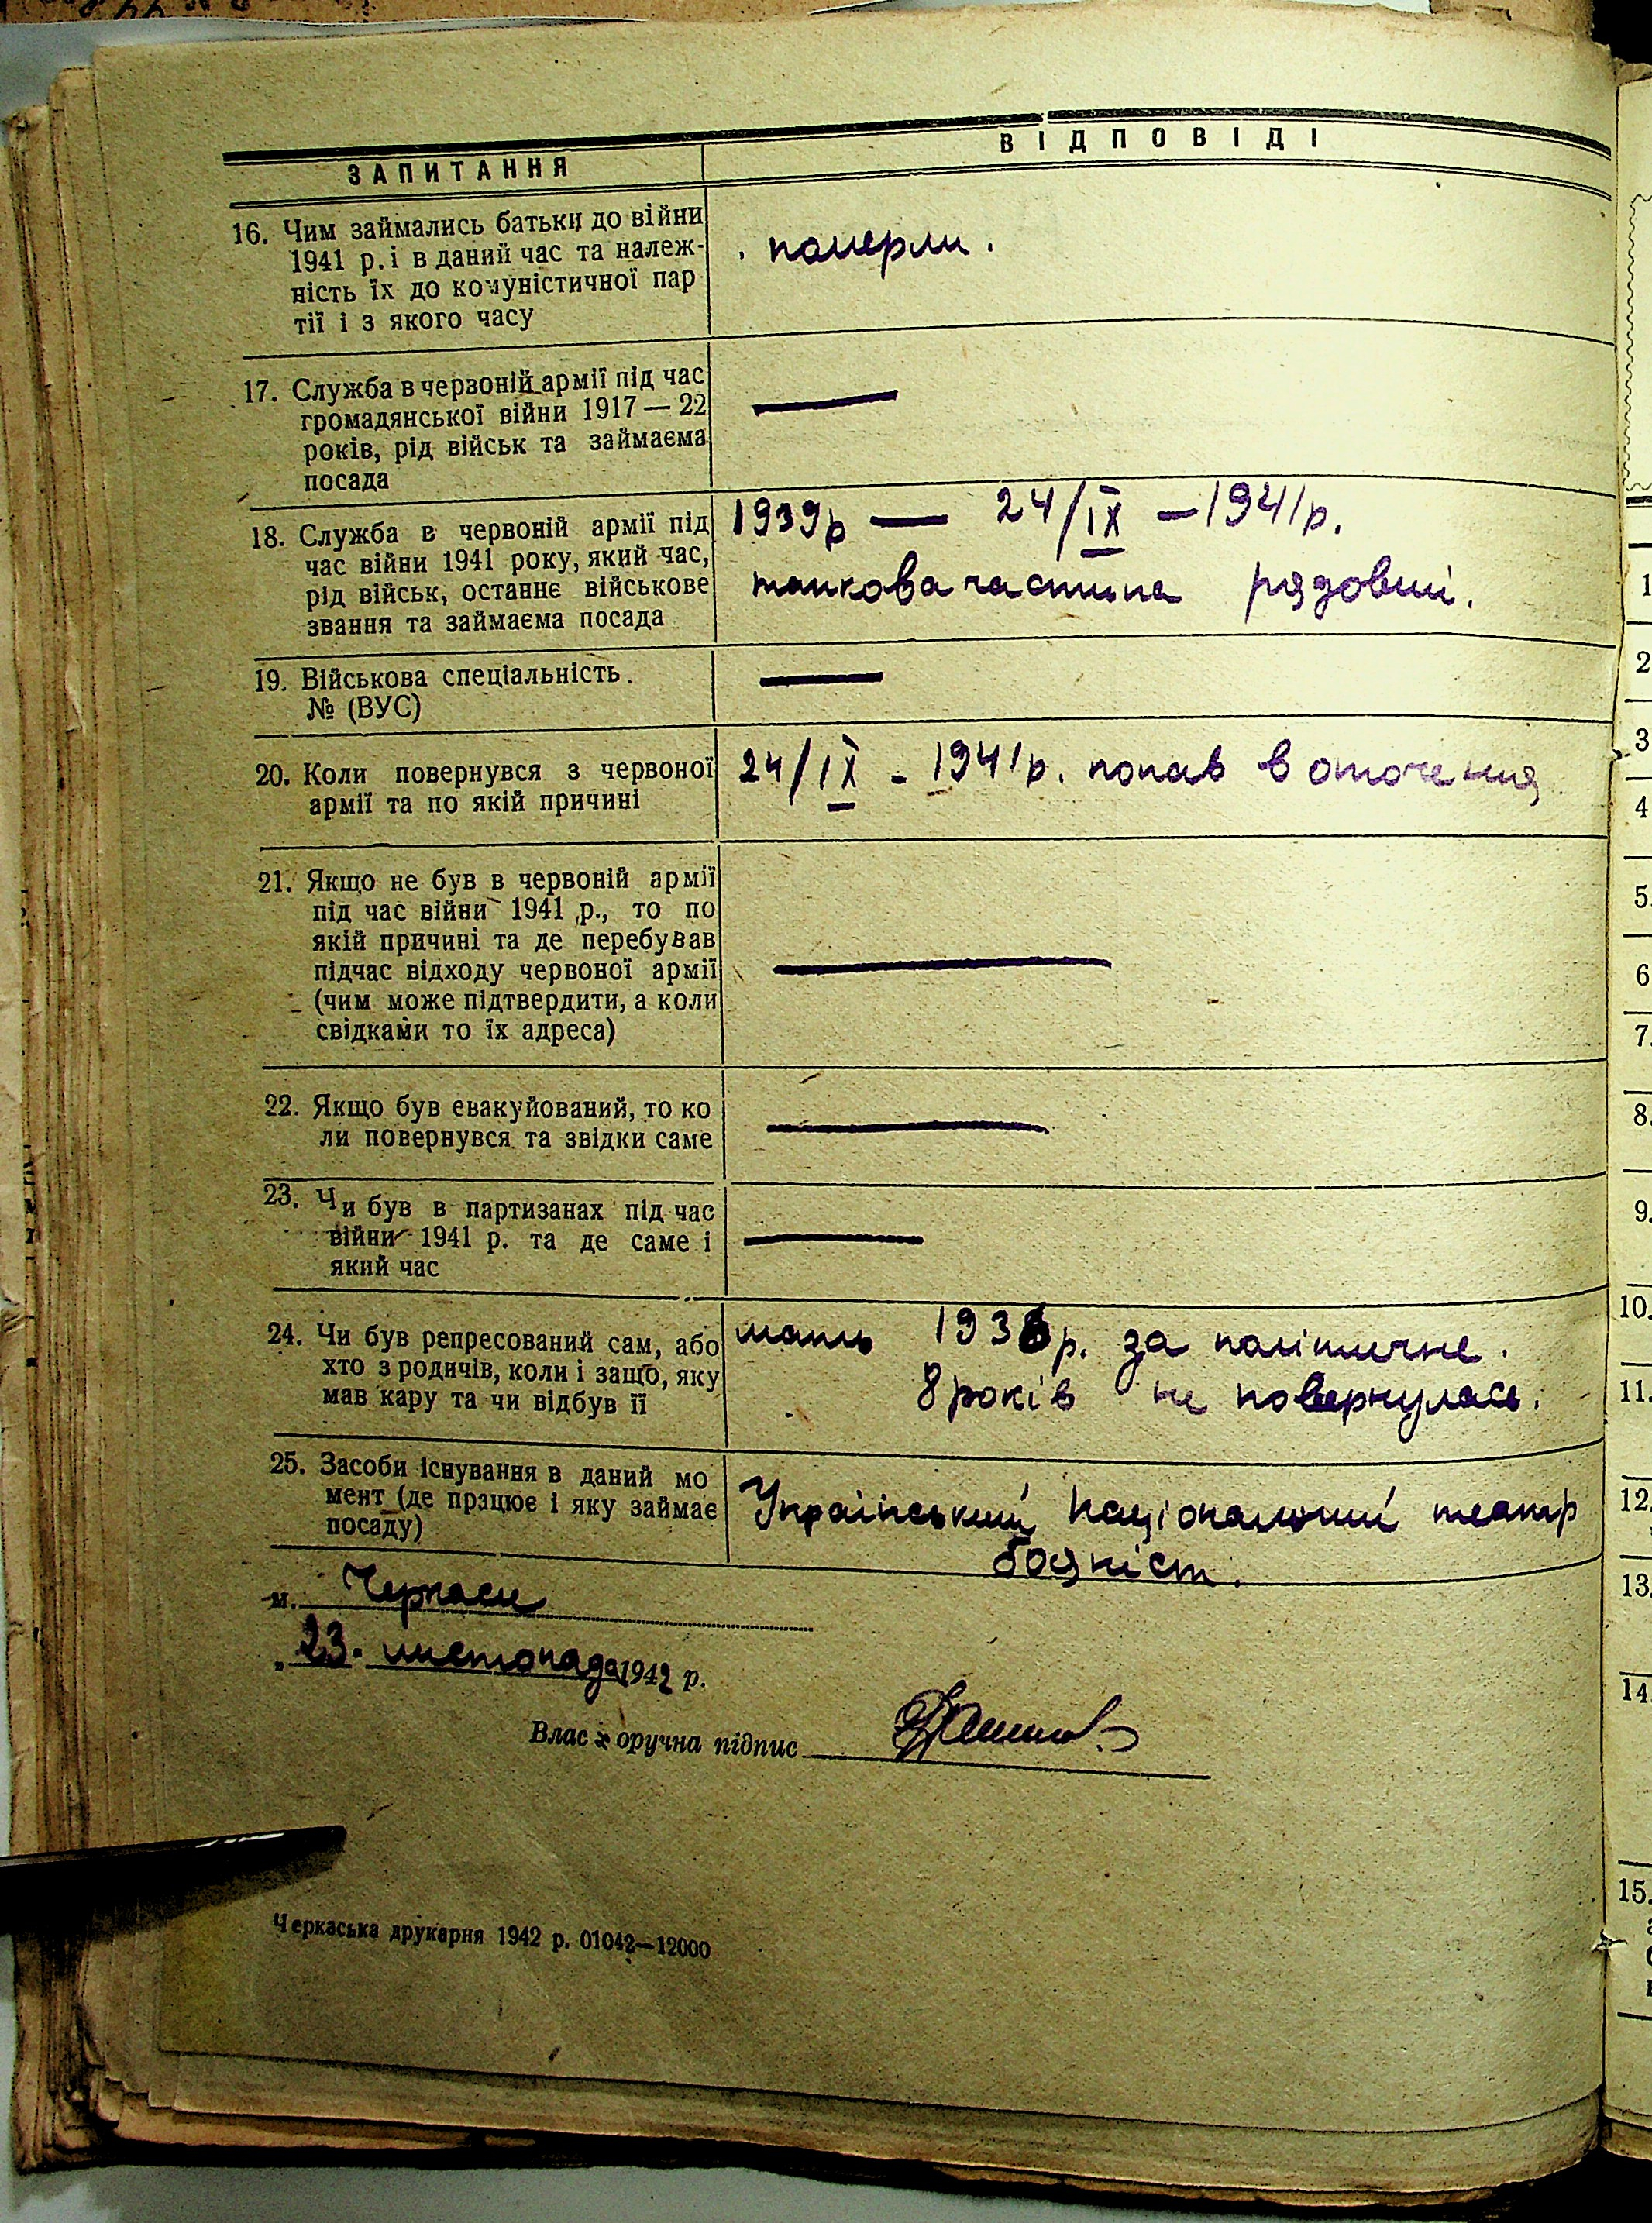 ЗАПИТАННЯ
ВІДПОВІДІ
16. Чим займались батьки до війни
1941 р. і в даний час та належ-
ність їх до комуністичної пар
тії і з якого часу
померли.
17. Служба в червоній армії під час
громадянської війни 1917 — 22
років, рід військ та займаєма
посада
—
18. Служба в червоній армії під
час війни 1941 року, який час,
рід військ, останнє військове
звання та займаєма посада
1939р — 24/IX – 1941р.
танкова частина рядовий.
19. Військова спеціальність.
№ (ВУС)
—
20. Коли повернувся з червоної
армії та по якій причині
24/IX - 1941р. попав в оточення
21. Якщо не був в червоній армії
під час війни 1941 р., то по
якій причині та де перебував
підчас відходу червоної армії
(чим може підтвердити, а коли
свідками то їх адреса)
—
22. Якщо був евакуйований, то ко
ли повернувся та звідки саме
—
23. Чи був в партизанах під час
війни 1941 р. та де саме і
який час
—
24. Чи був репресований сам, або
хто з родичів, коли і защо, яку
мав кару та чи відбув її
мать р. за політичне.
8 років не повернулась.
25. Засоби існування в даний мо
мент (де працює і яку займає
посаду)
Український Національний театр
бояніст.
м. Черкаси
„23. листопада 1942 р.
Влас оручна підпис
Черкаська друкарня 1942 р. 01042—12000
1
2
3
4
5.
6
7.
8.
9.
10.
11.
12.
13.
14
15.